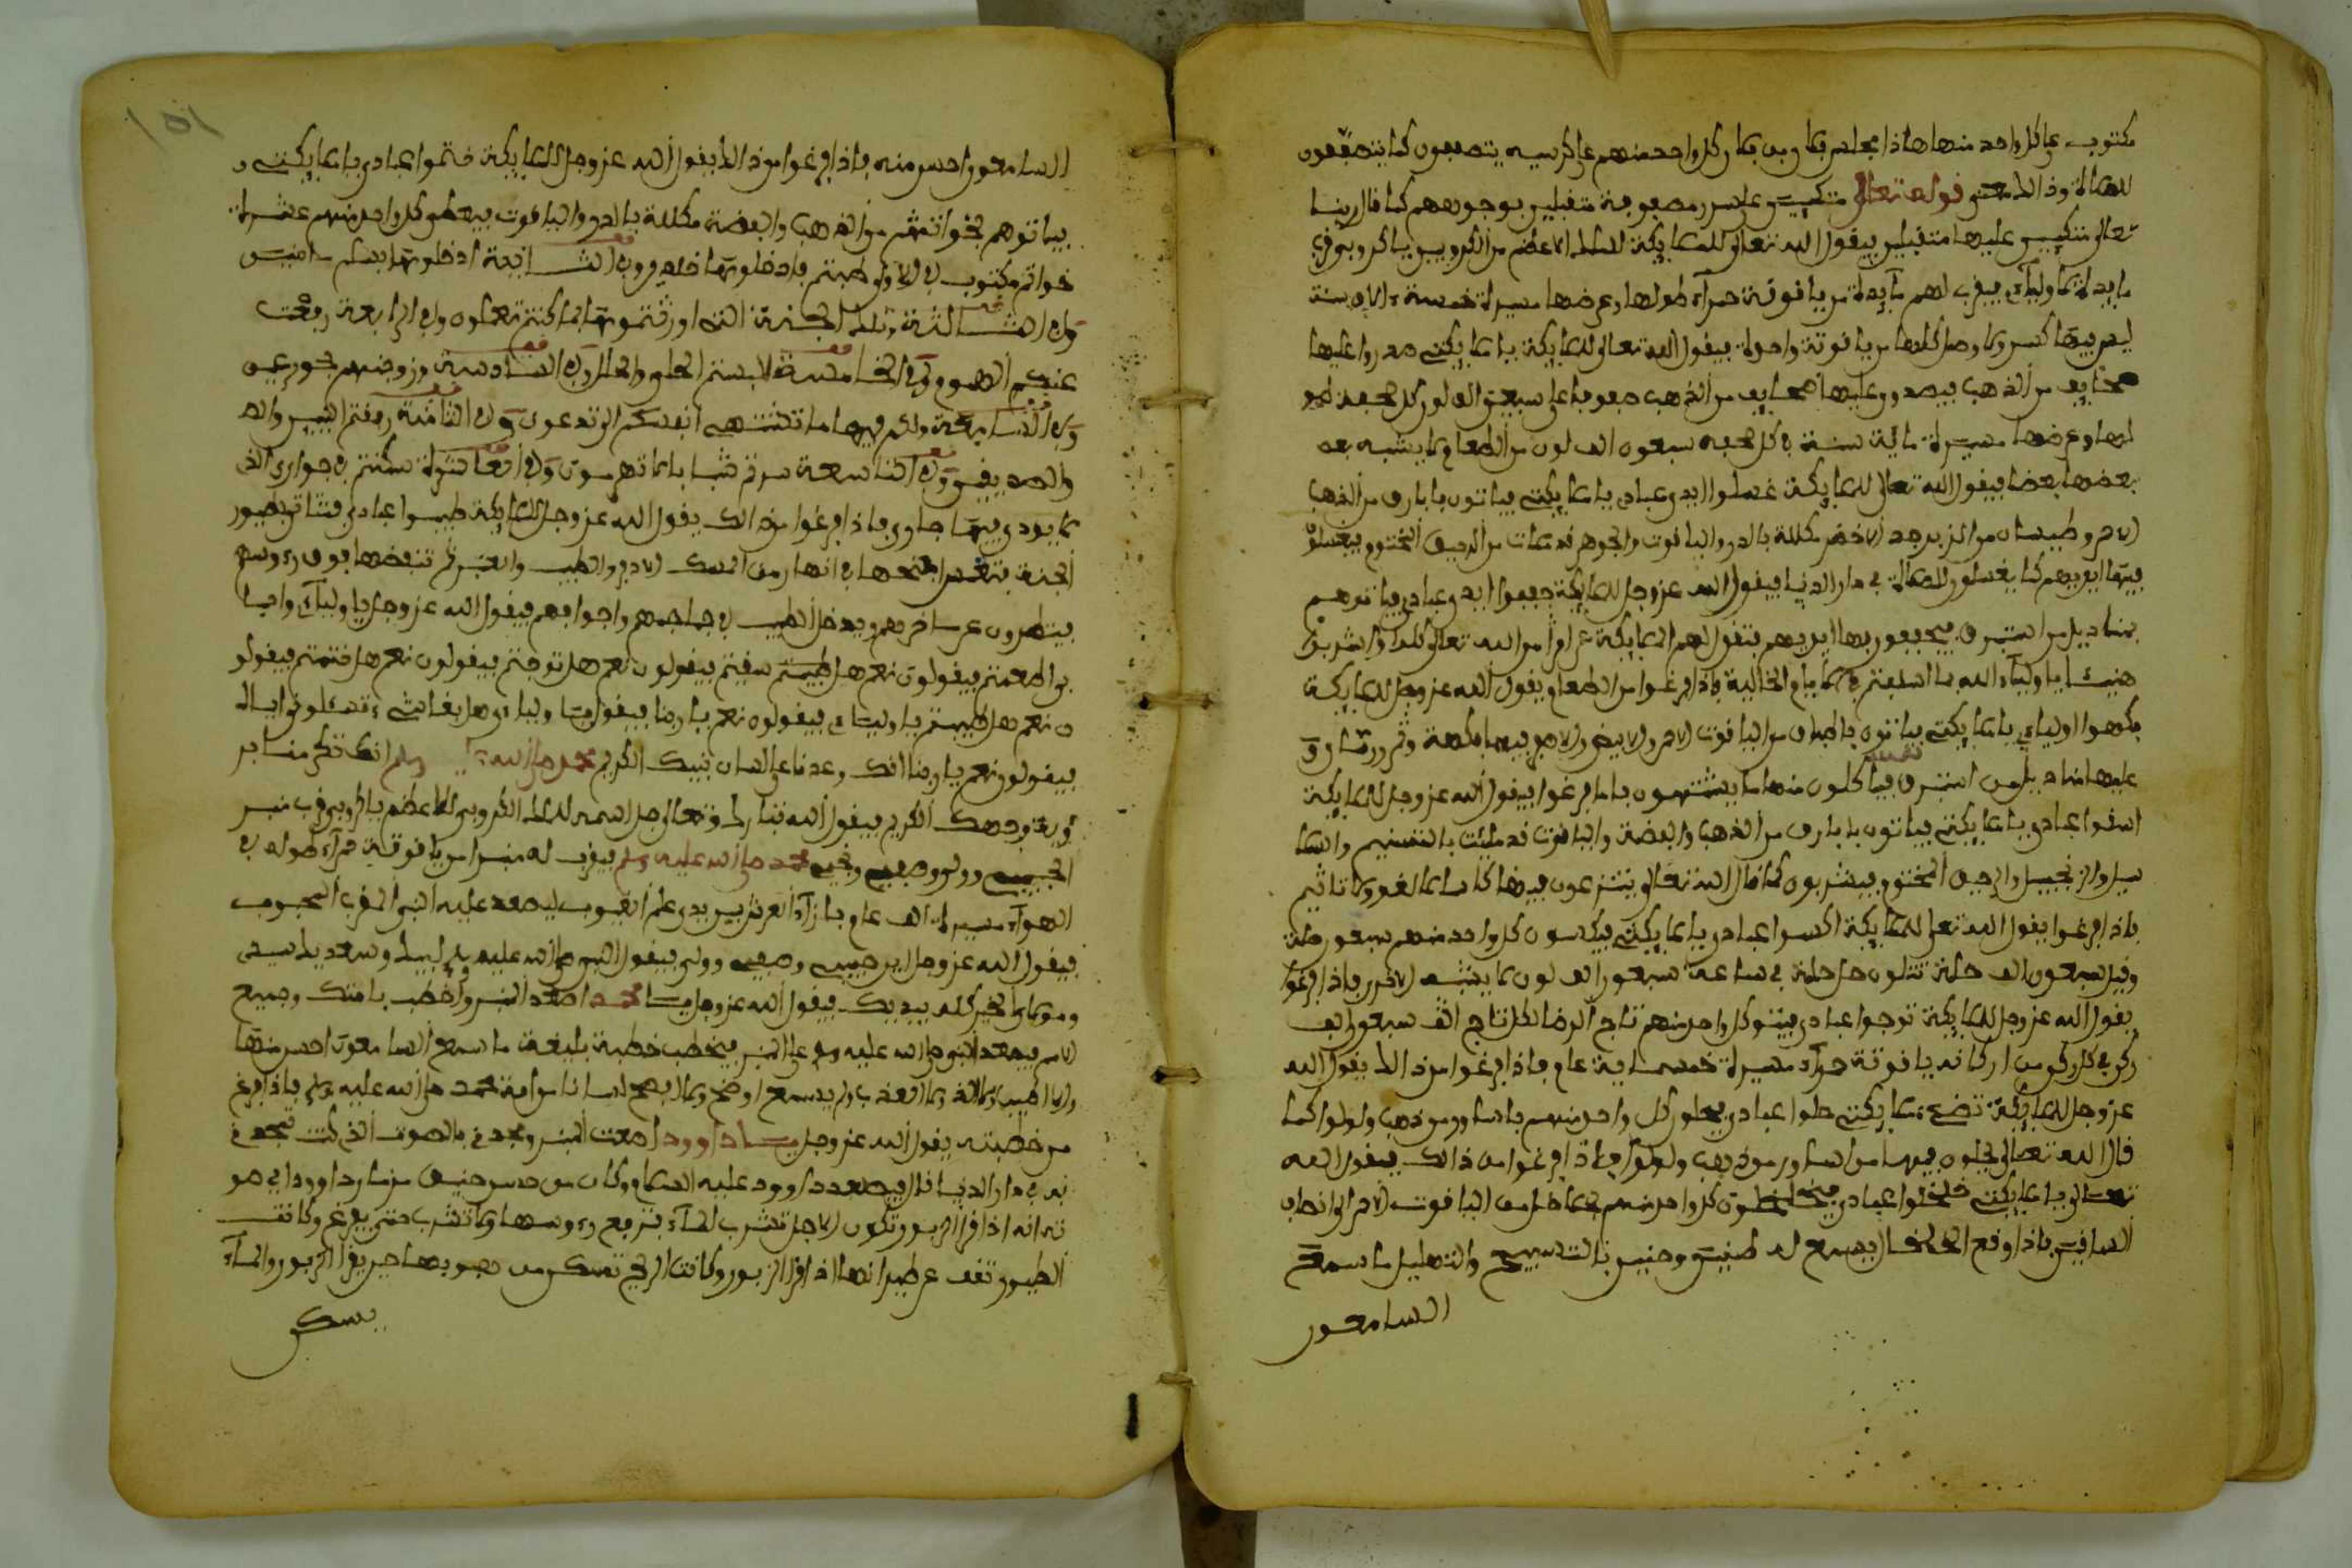 مكتوب على كل واحد منها هاذا مجلس فلان بن فلان وكل واحد منهم على كرسيه يتصففون كما يتصففون
للصلاة وذالك معنى قوله تعالى متكئين على سرر مصفوفة متقبلين بوجوههم كما قال ربنا
تعالى متكئين عليها متقبلين فيقول الله تعالى للملائكة للملك الاعظم من الكروبيين يا كروبي قرب
مايدة لاوليآي فيقرب لهم مآيدة من ياقوتة حمرآء طولها وعرضها مسيرة خمسة ءالاف سنة
ليس فيها كسر ولا وصل كلها من ياقوتة واحدة فيقول الله تعالى للملايكة يا ملايكتي صدروا عليها
صحايف من الذهب فيصدرون عليها صحايف من الذهب صفوفا على سبعين الف لون كل صحفة طو
لها وعرضها مسيرة ماية سنة في كل صحفة سبعون الف لون من الطعام لا يشبه بعـ
بعضها بعضا فيقول الله تعالى للملايكة غسلوا ايدي عبادي يا ملايكتي فياتون باباريق من الذهب
الاحمر وطيسان من الزبرجد الاخضر مكللة بالدر والياقوت والجوهر قد ملئت من الرحيق المختوم فيغسلون
فيها ايديهم كما يغسلون للصلاة في دار الدنيا فيقول الله عز وجل للملايكة جففوا ايدي عبادي فياتوهم
بمناديل من استبرق فيجففون بها ايديهم فتقول لهم الملايكة عن امر من الله تعالى كلوا واشربوا
هنيئا يا اوليآء الله بما اسلفتم في الايام الخالية فاذا فرغوا من الطعام يقول الله عز وجل للملايكة
فكهوا اوليآي يا ملايكتي فياتون باطباق من الياقوت الاحمر والابيض والاصفر فيها فاكهة وثمر ورمان و
عليها مناديل من استبرق فياكلون منها ما يشتهون فاما فرغوا فيقول الله عز وجل للملايكة
اسقوا عبادي يا ملايكتي فياتون باباريق من الذهب والفضة والياقوت قد ملئت بالتسنيم والسلـ
سبيل والزنجبيل والرحيق المختوم فيشربون كما قال الله تعالى يتنزعون فيها كأسا لا لغو ولا تاثيم
فاذا فرغوا يقول الله تعالى للملايكة اكسوا عبادي يا ملايكتي فيكسون كل واحد منهم سبعون حلة
وقيل سبعون الف حلة تتلون كل حلة في ساعة سبعون الف لون لا يشبه الاخر فاذا فرغوا
يقول الله عز وجل للملايكة توجوا عبادي فيتوج كل واحد منهم تاج الرضا لكل تاج الف سبعون الف
ركن في كل ركن من اركانه ياقوتة حمرآء مسيرة خمسماية عام فاذا فرغوا من ذالك يقول الله
عز وجل للملايكة حلوا عبادي فيحلون كل واحد منهم باساور من ذهب ولولوا كما
قال الله تعالى يحلون فيها من اساور من ذهب ولولوا فاذا فرغوا من ذالك فيقول الله
تعالى يا ملايكتي خلخلوا عبادي فيخلخلون كل واحد منهم بخلاخل من الياقوت الاحمر الى انصاف
الساقين فاذا وقع الخلخال يسمع له طنين وحنين بالتسبيح والتهليل ما سمع
السامعون
السامعون احسن منه فاذا فرغوا من ذالك يقول الله عز وجل للملايكة ختموا عبادي يا ملايكتي
فياتوهم بخواتم من الذهب والفضة مكللة بالدر والياقوت فيعطى كل واحد منهم عشرة
خواتم مكتوب في الاول طبتم فادخلوها خلدين وفي الثانية ادخلوها بسلم ءامنين
وفي الثالثة تلك الجنة التي اورثتموها بما كنتم تعملون وفي الرابعة رفعت
عنكم الهموم وفي الخامسة لابستم الحلي والحلل وفي السادسة وزوجنهم بحور عين
وفي السابعة ولكم فيها ما تشتهي انفسكم ولكم فيها ما تدعون وفي الثامنة رافقتم النبيين والصـ
والصديقين وفي التاسعة صرتم شبابا لا تهرمون وفي العاشرة سكنتم في جوار الذي
لا يوذي فيها جاره فاذا فرغوا من ذالك يقول الله عز وجل للملايكة طيبوا عبادي فتاتي طيور
الجنة فتغمس اجنحتها في انهار من المسك الاذفر والطيب والعنبر ثم تنفضها فوق رءوسهم
فيقول الله عز وجل يا اوليآي واحبا
بي اطعمتم فيقولون نعم هل سقيتم فيقولون نعم هل توجتم فيقولون نعم هل ختمتم فيقولو
ن نعم هل طيبتم يا اوليآي فيقولون نعم يا ربنا فيقول يا اوليآي هل بقا شيء تسئلوني اياه
فيقولون نعم يا ربنا انك وعدتنا على لسان نبيك الكريم محمد صلى الله عليه وسلم
وجهك الكريم فيقول الله تبارك وتعالى جل اسمه للملك الكروبي الاعظم يا كروبي قرب منبر
لحبيبي محمد صلى الله عليه وسلم فيقرب له منبرا من ياقوتة حمرآء طوله في
الهوآء مسيرة الف عام بازآء العرش بين يدي علم الغيوب ليصعد عليه النبي المقرب المحبوب
فيقول الله عز وجل اين حبيبي وصفيي فيقول النبي صلى الله عليه وسلم لبيك وسعديك سيدي
ومولاي الخير كله بيديك فيقول الله عز وجل يا محمد اصعد المنبر واخطب بامتك وجميع
الامم فيصعد النبي صلى الله عليه وسلم على المنبر فيخطب خطبة بليغة ما سمع السامعون احسن منها
ولا اطيب ولا الذ ولا اعذب ولم يسمع اوضح ولا افصح لسانا من لغة محمد صلى الله عليه وسلم فاذا فرغ
من خطبته يقول الله عز وجل يا داوود اصعد المنبر ومجدني بالصوت الذي كنت تمجدني
به في دار الدنيا قال فيصعد داوود عليه السلام وكان من حسن
انه اذا قرا الزبور تكون الاجل تشرب المآء فترفع رءوسها ولا تشرب حتى يفرغ وكانت
الطيور تقف عن طيرانها اذا قرا الزبور وكانت الريح تسكن من هبوبها حين يقرا الزبور والمآء
يسكن